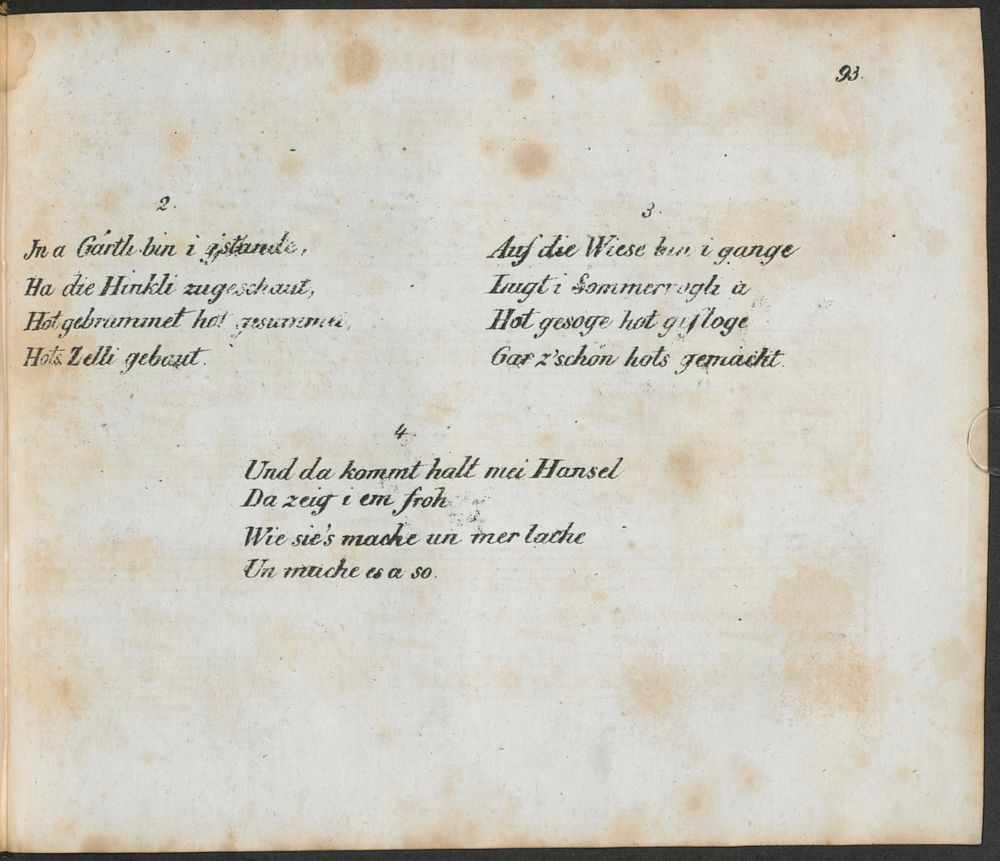 93.
2.
In a Gärtli bin i gstande,
Ha die Hinkli zugeschaut,
Hot gebrammet hot gesummet,
Hots Zelli gebaut.
3.
Auf die Wiese bin i gange
Lugt i Sommervogli a
Hot gesoge hot gefloge
Gar z'schön hots gemacht.
4.
Und da kommt halt mei Hansel
Da zeig i em froh
Wie sie's mache un mer lache
Un mache es a so.